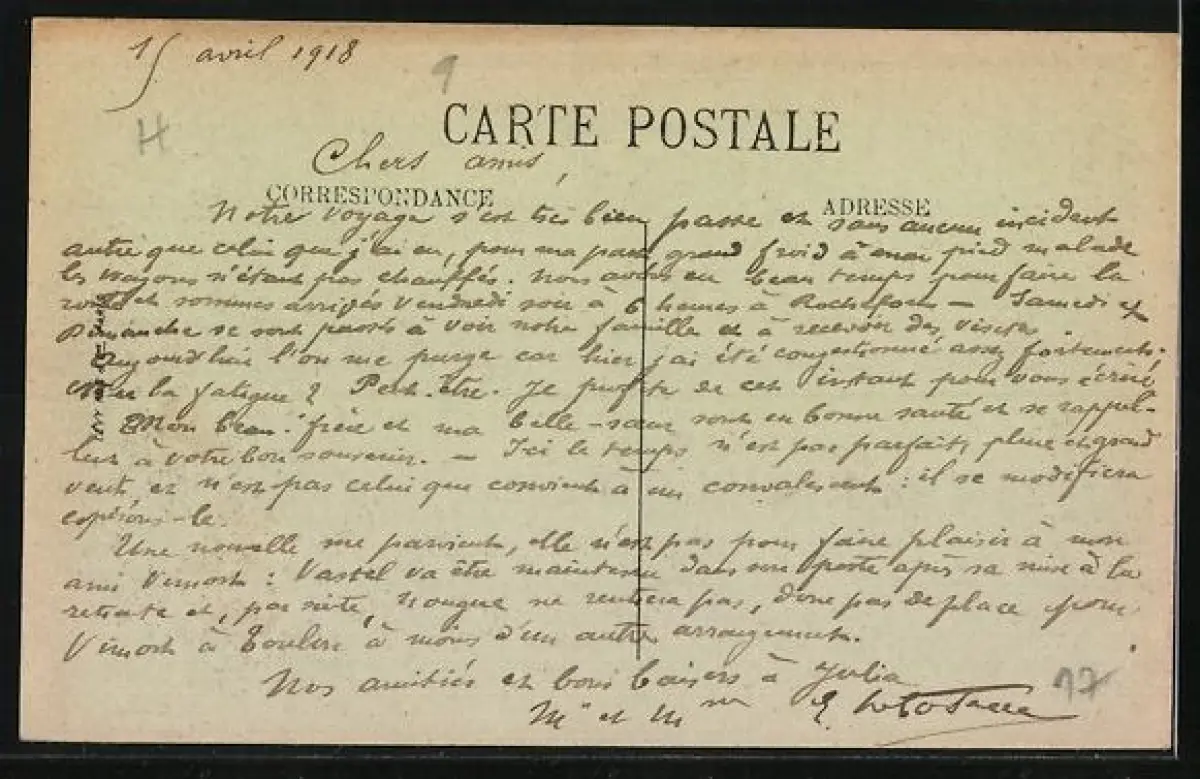 15 avril 1918
9
H
CARTE POSTALE
Chers amis,
CORRESPONDANCE
ADRESSE
Notre voyage s'est très bien passé et sans aucun incident
autre que celui que j'ai eu, pour ma part, grand froid à mon pied malade
les wagons n'étant pas chauffés. Nous avons eu beau temps pour faire la
route et sommes arrivés Vendredi soir à 6 heures à Rochefort – Samedi et
Dimanche se sont passés à voir notre famille et à recevoir des visites.
Aujourd'hui l'on me purge car hier j'ai été congestionné assez fortement.
la fatigue ? Peut-être. Je profite de cet instant pour vous écrire
Mon beau-frère et ma belle-sœur sont en bonne santé et se rappel-
lent à votre bon souvenir. – Ici le temps n'est pas parfait, pluie et grand
vent, et n'est pas celui que convient à un convalescent : il se modifiera
espérons-le.
Une nouvelle me parvient, elle n'est pas pour faire plaisir à mon
ami Vimont : Vastel va être maintenu dans son poste après sa mise à la
retraite et, par suite, ne rentrera pas, donc pas de place pour
Vimont à Toulon à moins d'un autre arrangement.
Nos amitiés et bons baisers à Julia
Mr et Mme E.
17